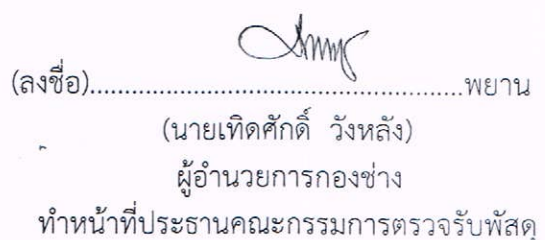 (ลงชื่อ)......................................................พยาน
(นายเทิดศักดิ์ วังหลัง)
ผู้อำนวยการกองช่าง
ทำหน้าที่ประธานคณะกรรมการตรวจรับพัสดุ